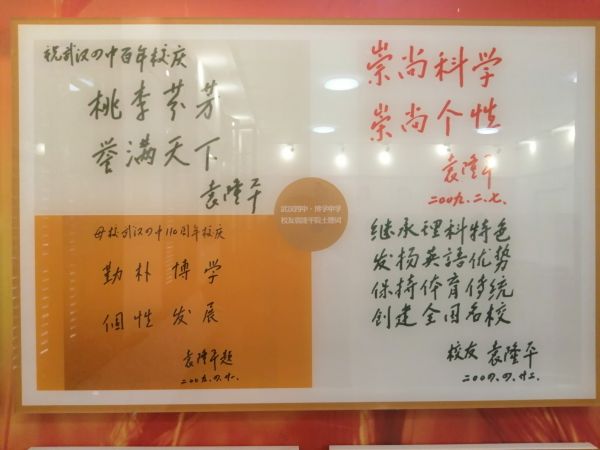 祝武汉四中百年校庆
桃李芬芳
誉满天下
袁隆平
崇尚科学
崇尚个性
袁隆平
二〇〇九.二.七.
武汉四中·博学中学
校友袁隆平院士题词
母校武汉四中110周年校庆
勤朴博学
個性发展
袁隆平题
二〇〇九.四.廿二.
继承理科特色
发扬英語优势
保持体育传统
创建全国名校
校友 袁隆平
二〇〇四.四.廿二.